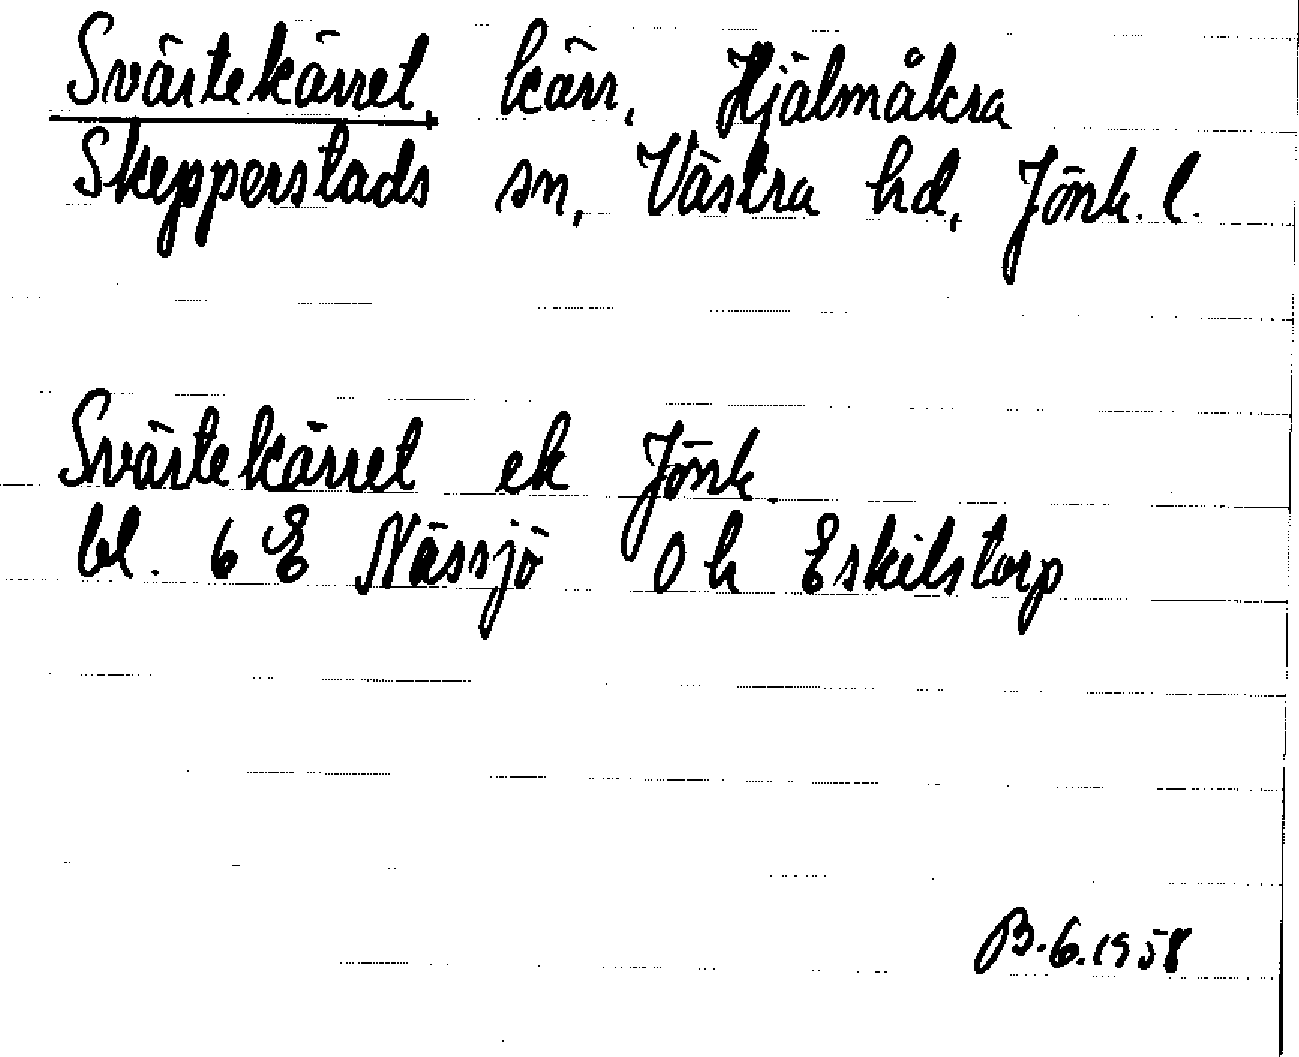 Svärtekärret, kärr, Hjälmåkra
Skepperstads sn, Västra hd, Jönk. l.
Svärtekärret ek Jönk.
bl. 6 E Nässjö 0 h Eskilstorp
B. 6. 1958